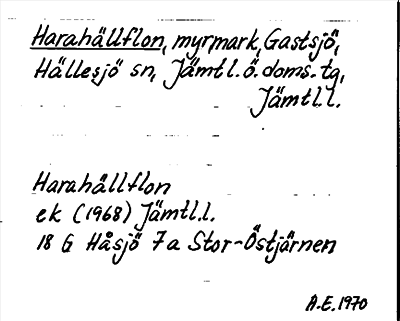 Harahällflon, myrmark, Gastsjö,
Hällesjö sn, Jämtl. ö. doms. tg,
Jämtl.l.
Harahällflon
ek (1968) Jämtl.l.
18 G Håsjö 7a Stor-Östjärnen
A.E. 1970